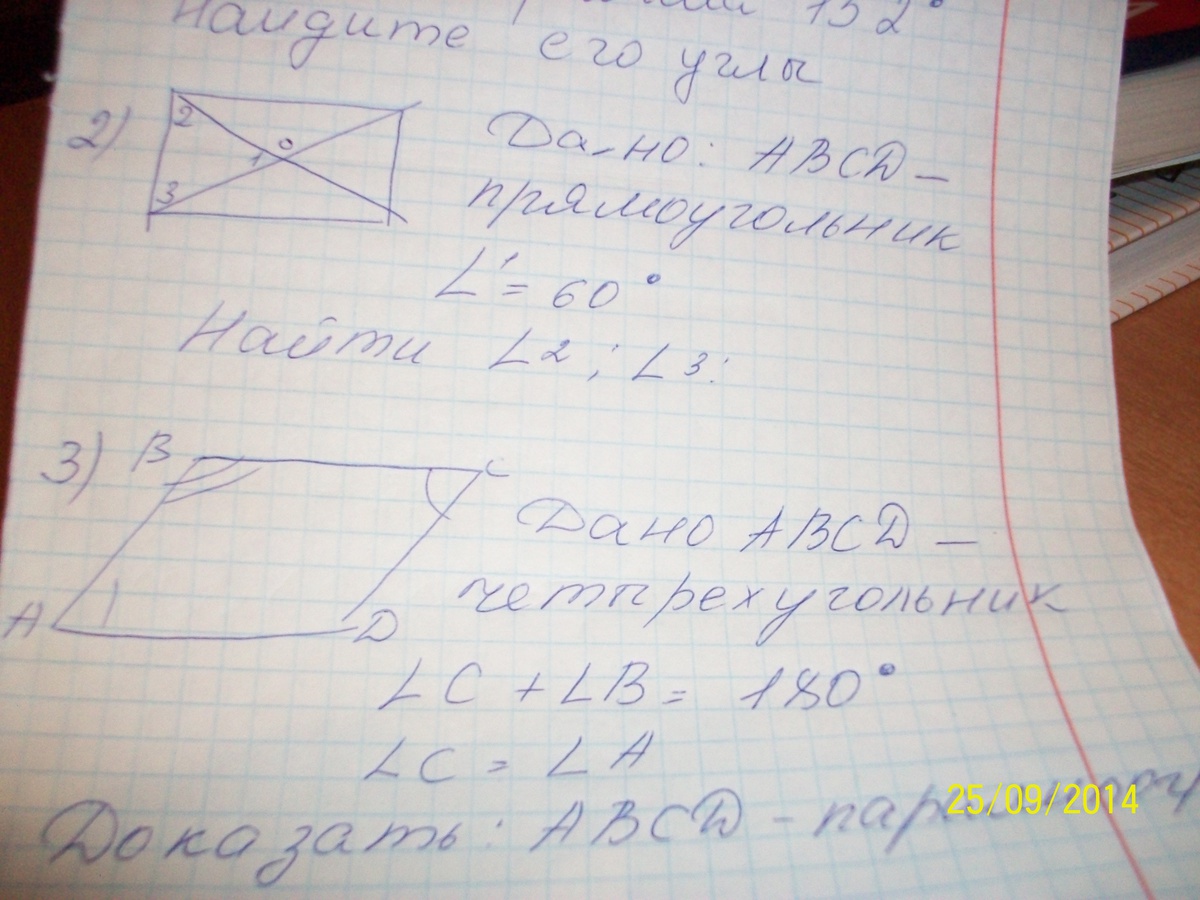 132°
Найдите его углы
2)
2
O
1
3
Дано: ABCD –
прямоугольник
∠1 = 60°
Найти ∠2; ∠3:
3) B C
A D
Дано ABCD –
четырехугольник
∠C + ∠B = 180°
∠C = ∠A
Доказать: ABCD –
25/09/2014